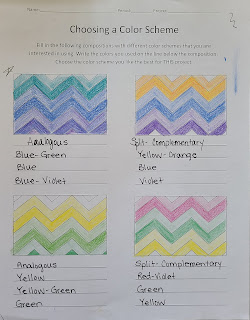 Choosing a Color Scheme
Fill in the following compositions with different color schemes that you are
interested in using. Write the colors you used on the line below the composition.
Choose the color scheme you like the best for THIS project.
Analogous
Blue-Green
Blue
Blue-Violet
Split-Complementary
Yellow-Orange
Blue
Violet
Analogous
Yellow
Yellow-Green
Green
Split-Complementary
Red-Violet
Green
Yellow